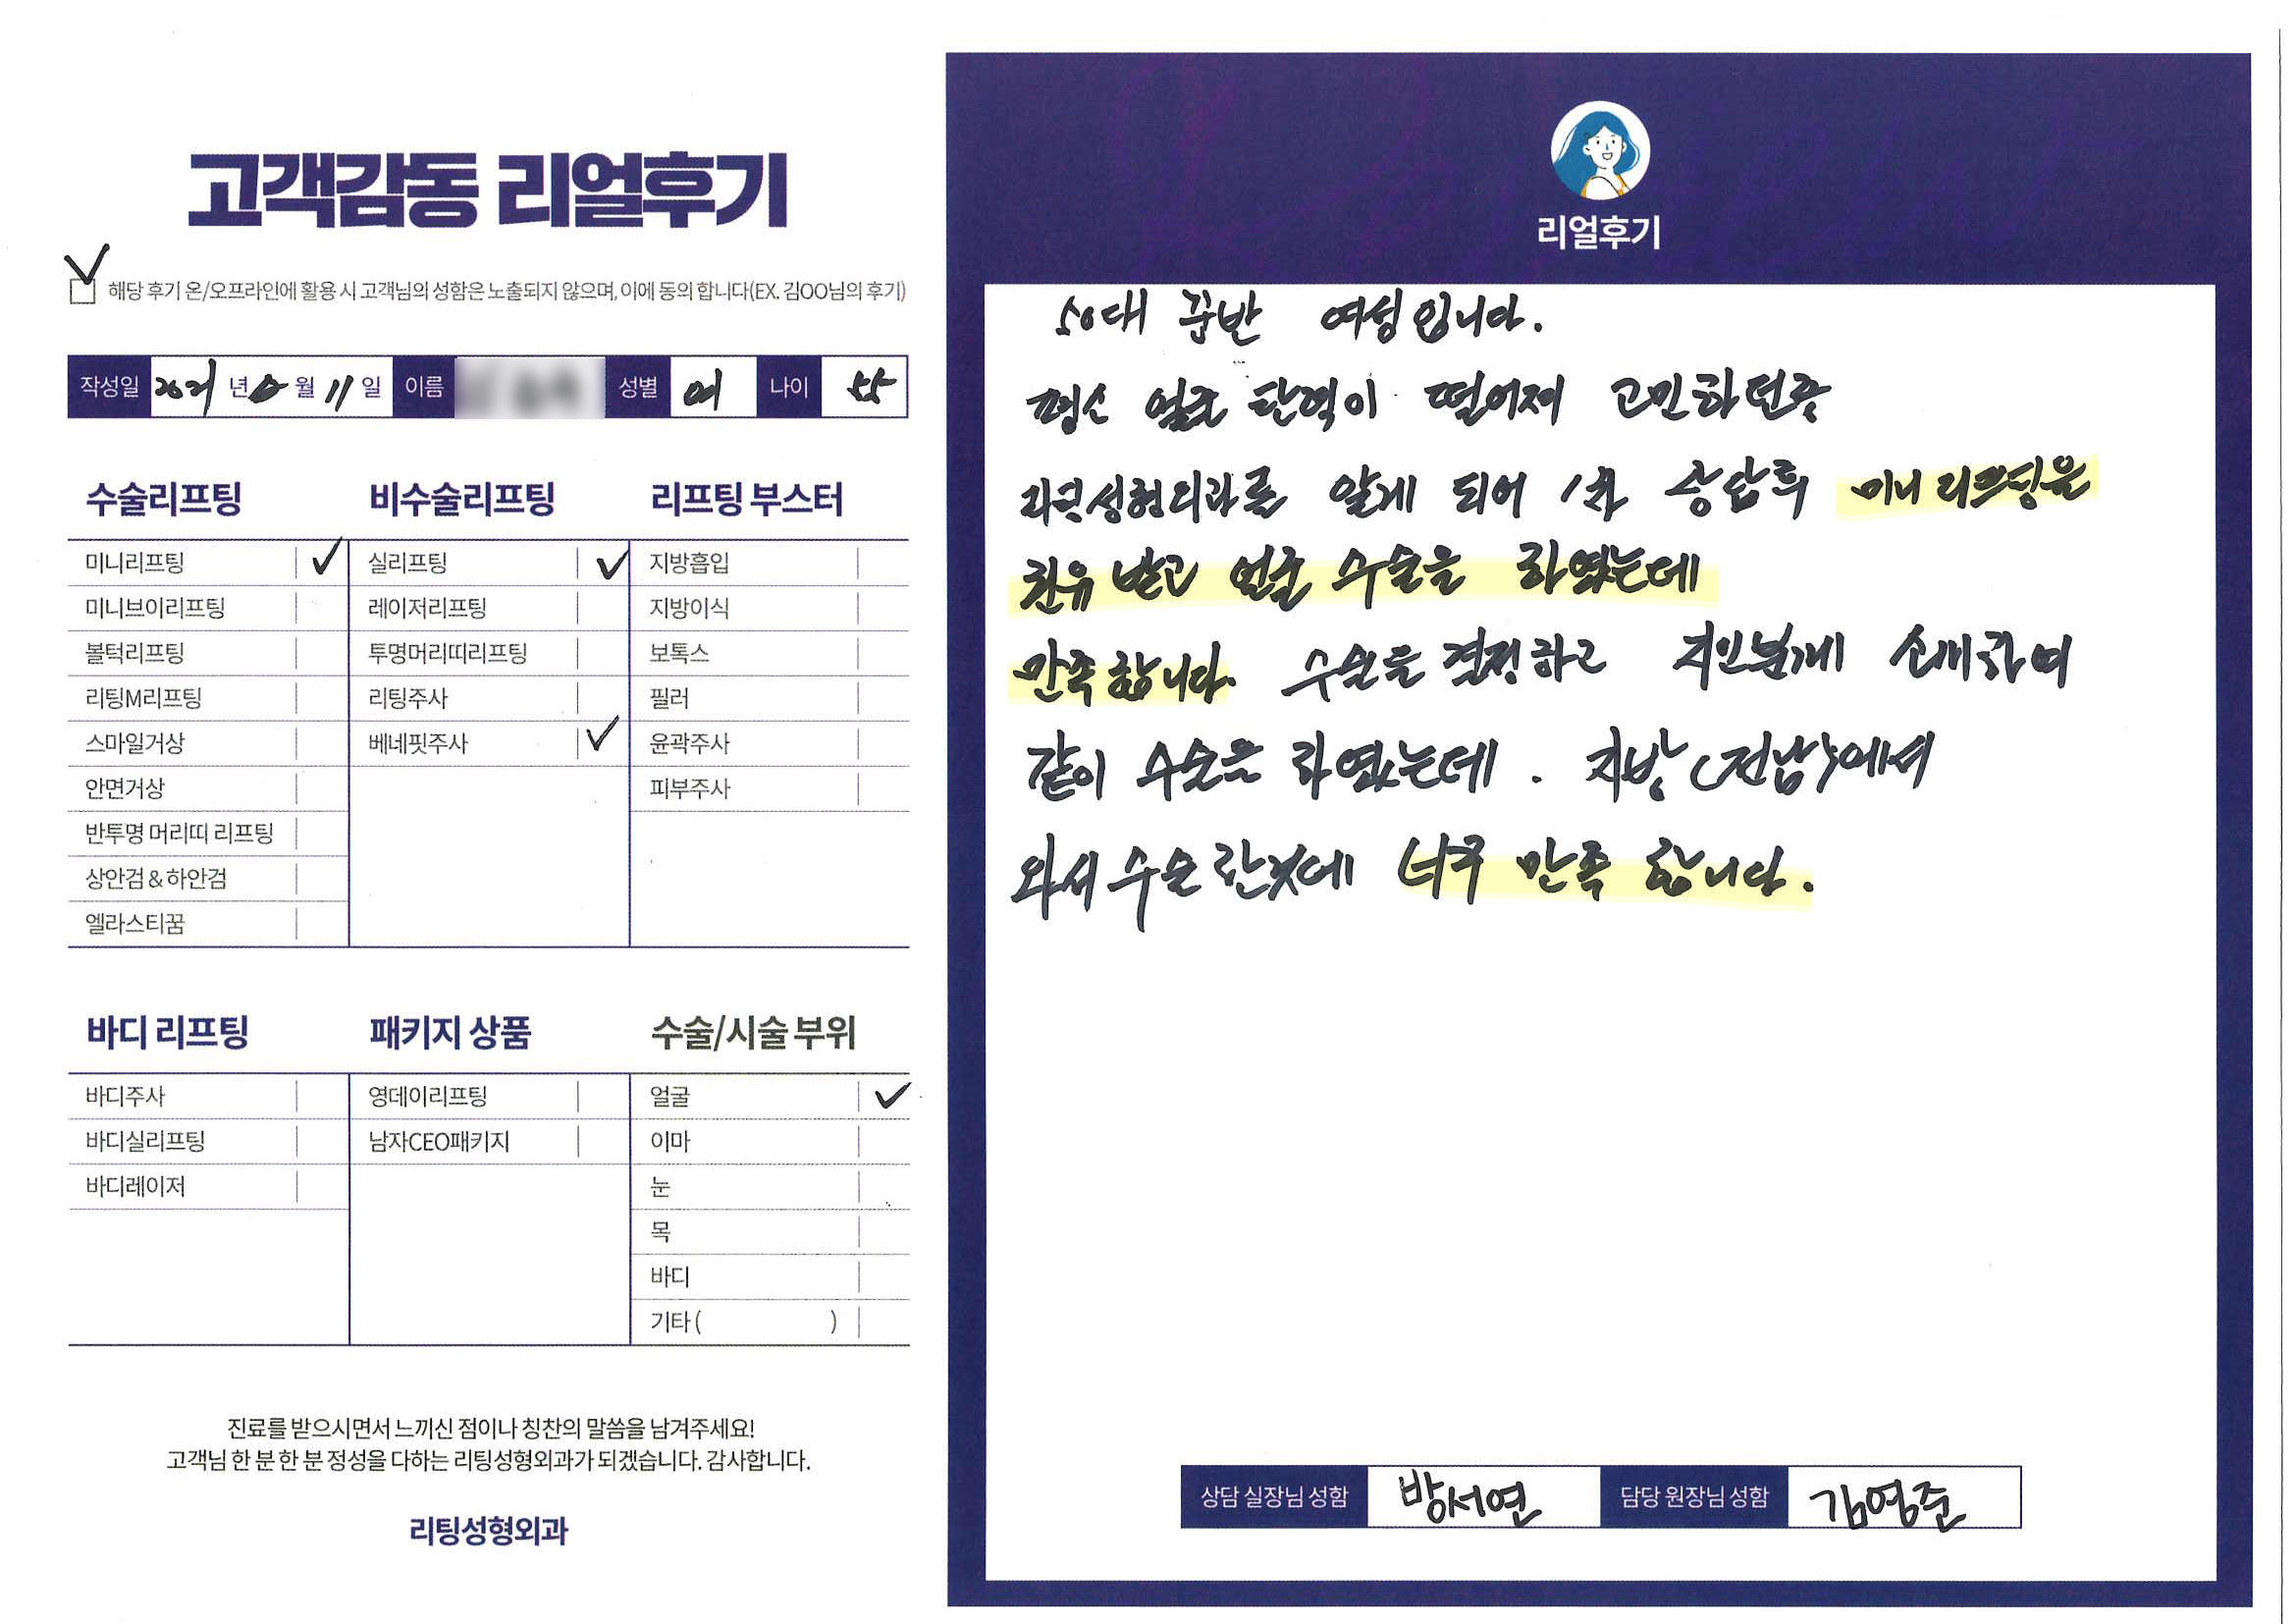 고객감동 리얼후기
해당 후기 온/오프라인에 활용 시 고객님의 성함은 노출되지 않으며, 이에 동의 합니다(EX. 김OO님의 후기)
작성일 2021 년 월 11 일 이름 성별 여 나이 55
수술리프팅
미니리프팅 ✓
미니브이리프팅
볼턱리프팅
리팅M리프팅
스마일거상
안면거상
반투명 머리띠 리프팅
상안검 & 하안검
엘라스티꿈
비수술리프팅
실리프팅 ✓
레이저리프팅
투명머리띠리프팅
리팅주사
베네핏주사 ✓
리프팅 부스터
지방흡입
지방이식
보톡스
필러
윤곽주사
피부주사
바디 리프팅
바디주사
바디실리프팅
바디레이저
패키지 상품
영데이리프팅
남자CEO패키지
수술/시술 부위
얼굴 ✓
이마
눈
목
바디
기타 ( )
진료를 받으시면서 느끼신 점이나 칭찬의 말씀을 남겨주세요!
고객님 한 분 한 분 정성을 다하는 리팅성형외과가 되겠습니다. 감사합니다.
리팅성형외과
리얼후기
50대 중반 여성입니다.
평소 얼굴 탄력이 떨어져 고민하던중
리팅성형외과를 알게 되어 1차 상담후 미니리프팅을
권유 받고 얼굴 수술을 하였는데
만족합니다. 수술을 결정하고 지인분께 소개하여
같이 수술을 하였는데. 지방(전남)에서
와서 수술한것데 너무 만족 합니다.
상담 실장님 성함 방서연 담당 원장님 성함 김영준